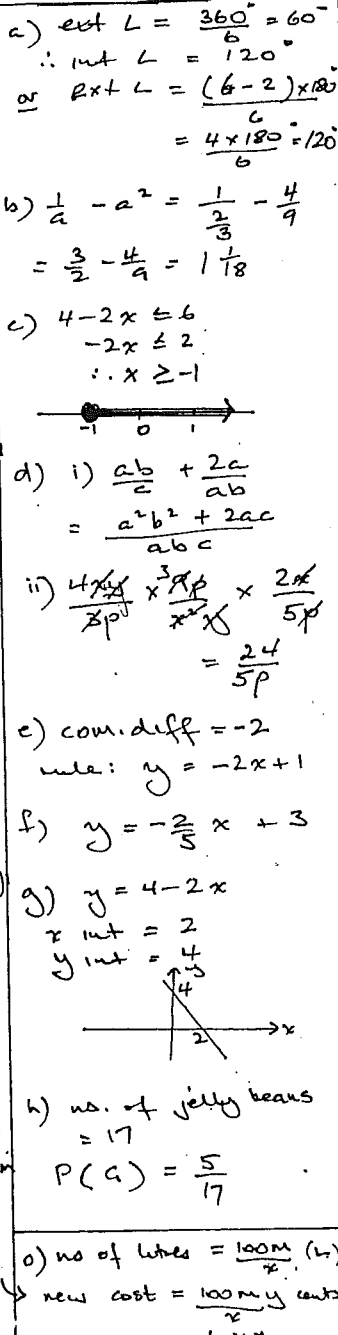 a) ext ∠ = 360°/6 = 60°
∴ int ∠ = 120°
or Ext ∠ = (6-2)×180°/6
= 4×180°/6 = 120°
b) 1/a - a² = 1/(2/3) - 4/9
= 3/2 - 4/9 = 1 1/18
c) 4-2x ≤ 6
-2x ≤ 2
∴ x ≥ -1
-1 0 1
d) i) ab/c + 2a/ab
= a²b² + 2ac/abc
= 24/5p
e) com. diff = -2
rule: y = -2x+1
f) y = -2/5 x + 3
g) y = 4-2x
x int = 2
y int = 4
y
4
2 x
h) no. of jelly beans
= 17
P(G) = 5/17
o) no of litres = 100m/x (L)
new cost = 100my/x cents